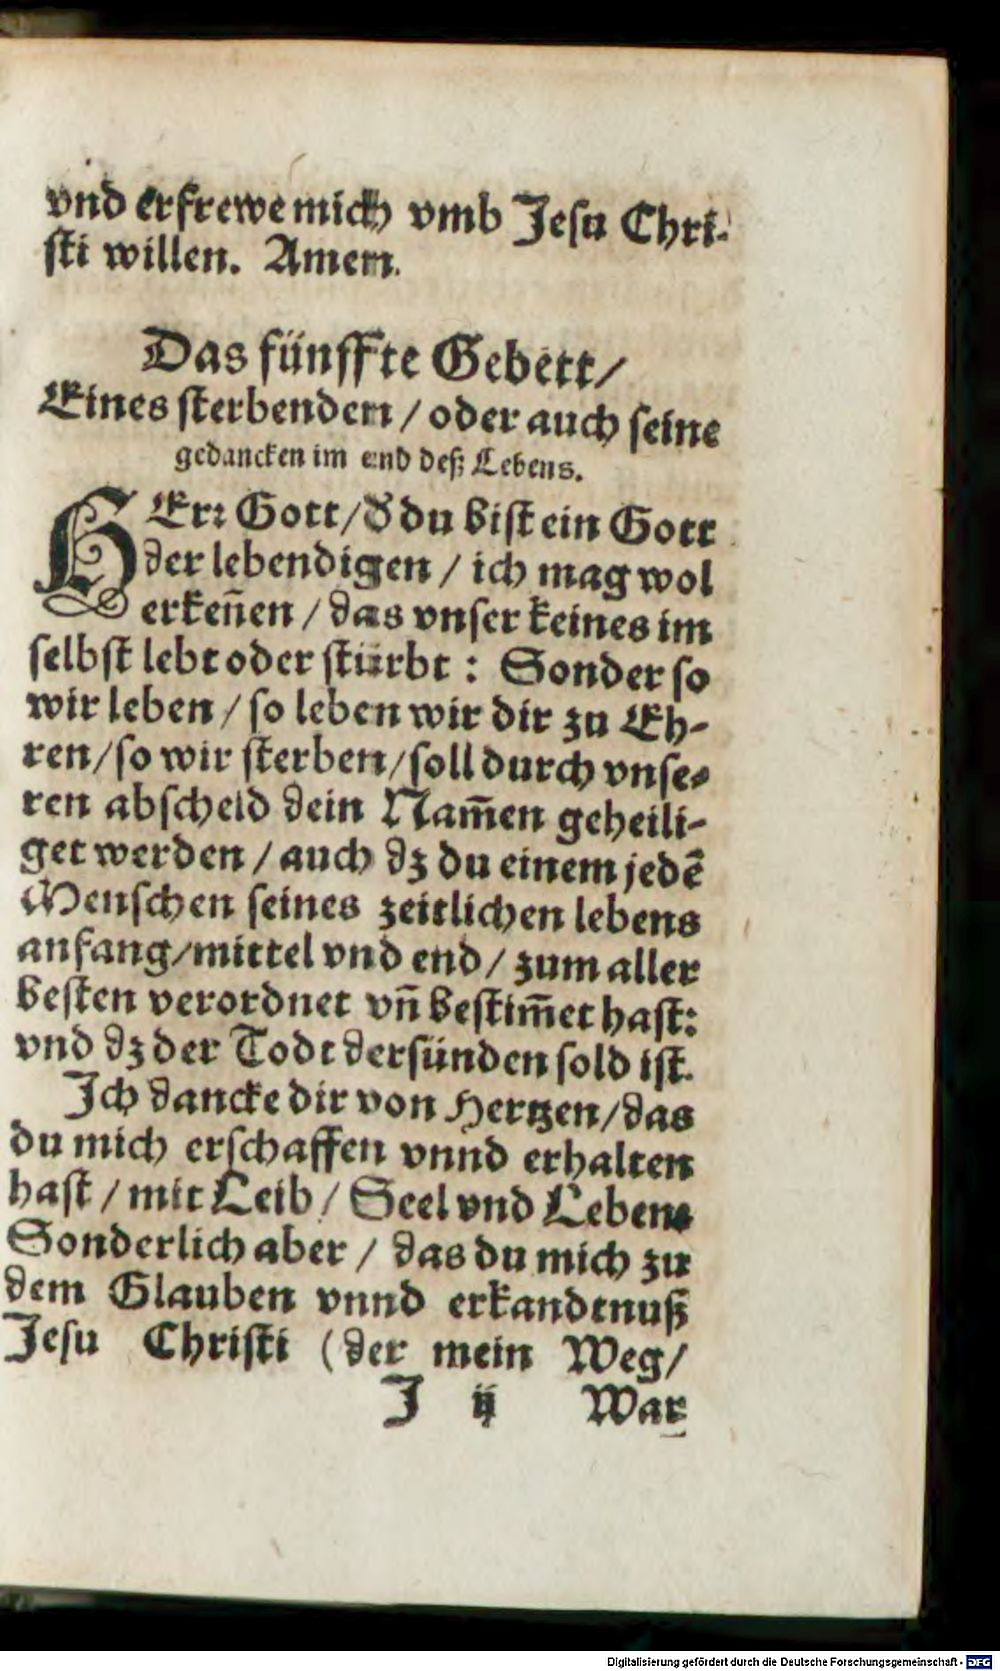 vnd erfrewe mich vmb Jesu Chri-
sti willen. Amen.
Das fünffte Gebett/
Eines sterbenden / oder auch seine
gedancken im end deß Lebens.
HErꝛ Gott/ d' du bist ein Gott
der lebendigen / ich mag wol
erkeñen / das vnser keines im
selbst lebt oder stürbt : Sonder so
wir leben / so leben wir dir zu Eh-
ren/ so wir sterben/ soll durch vnse-
ren abscheid dein Nam̃en geheili-
get werden / auch dz du einem jedẽ
Menschen seines zeitlichen lebens
anfang/mittel vnd end / zum aller
besten verordnet vñ bestim̃et hast:
vnd dz der Todt der sünden sold ist.
Ich dancke dir von Hertzen/das
du mich erschaffen vnnd erhalten
hast / mit Leib / Seel vnd Leben.
Sonderlich aber / das du mich zu
dem Glauben vnnd erkandtnuß
Jesu Christi (der mein Weg/
J ij War
Digitalisierung gefördert durch die Deutsche Forschungsgemeinschaft - DFG